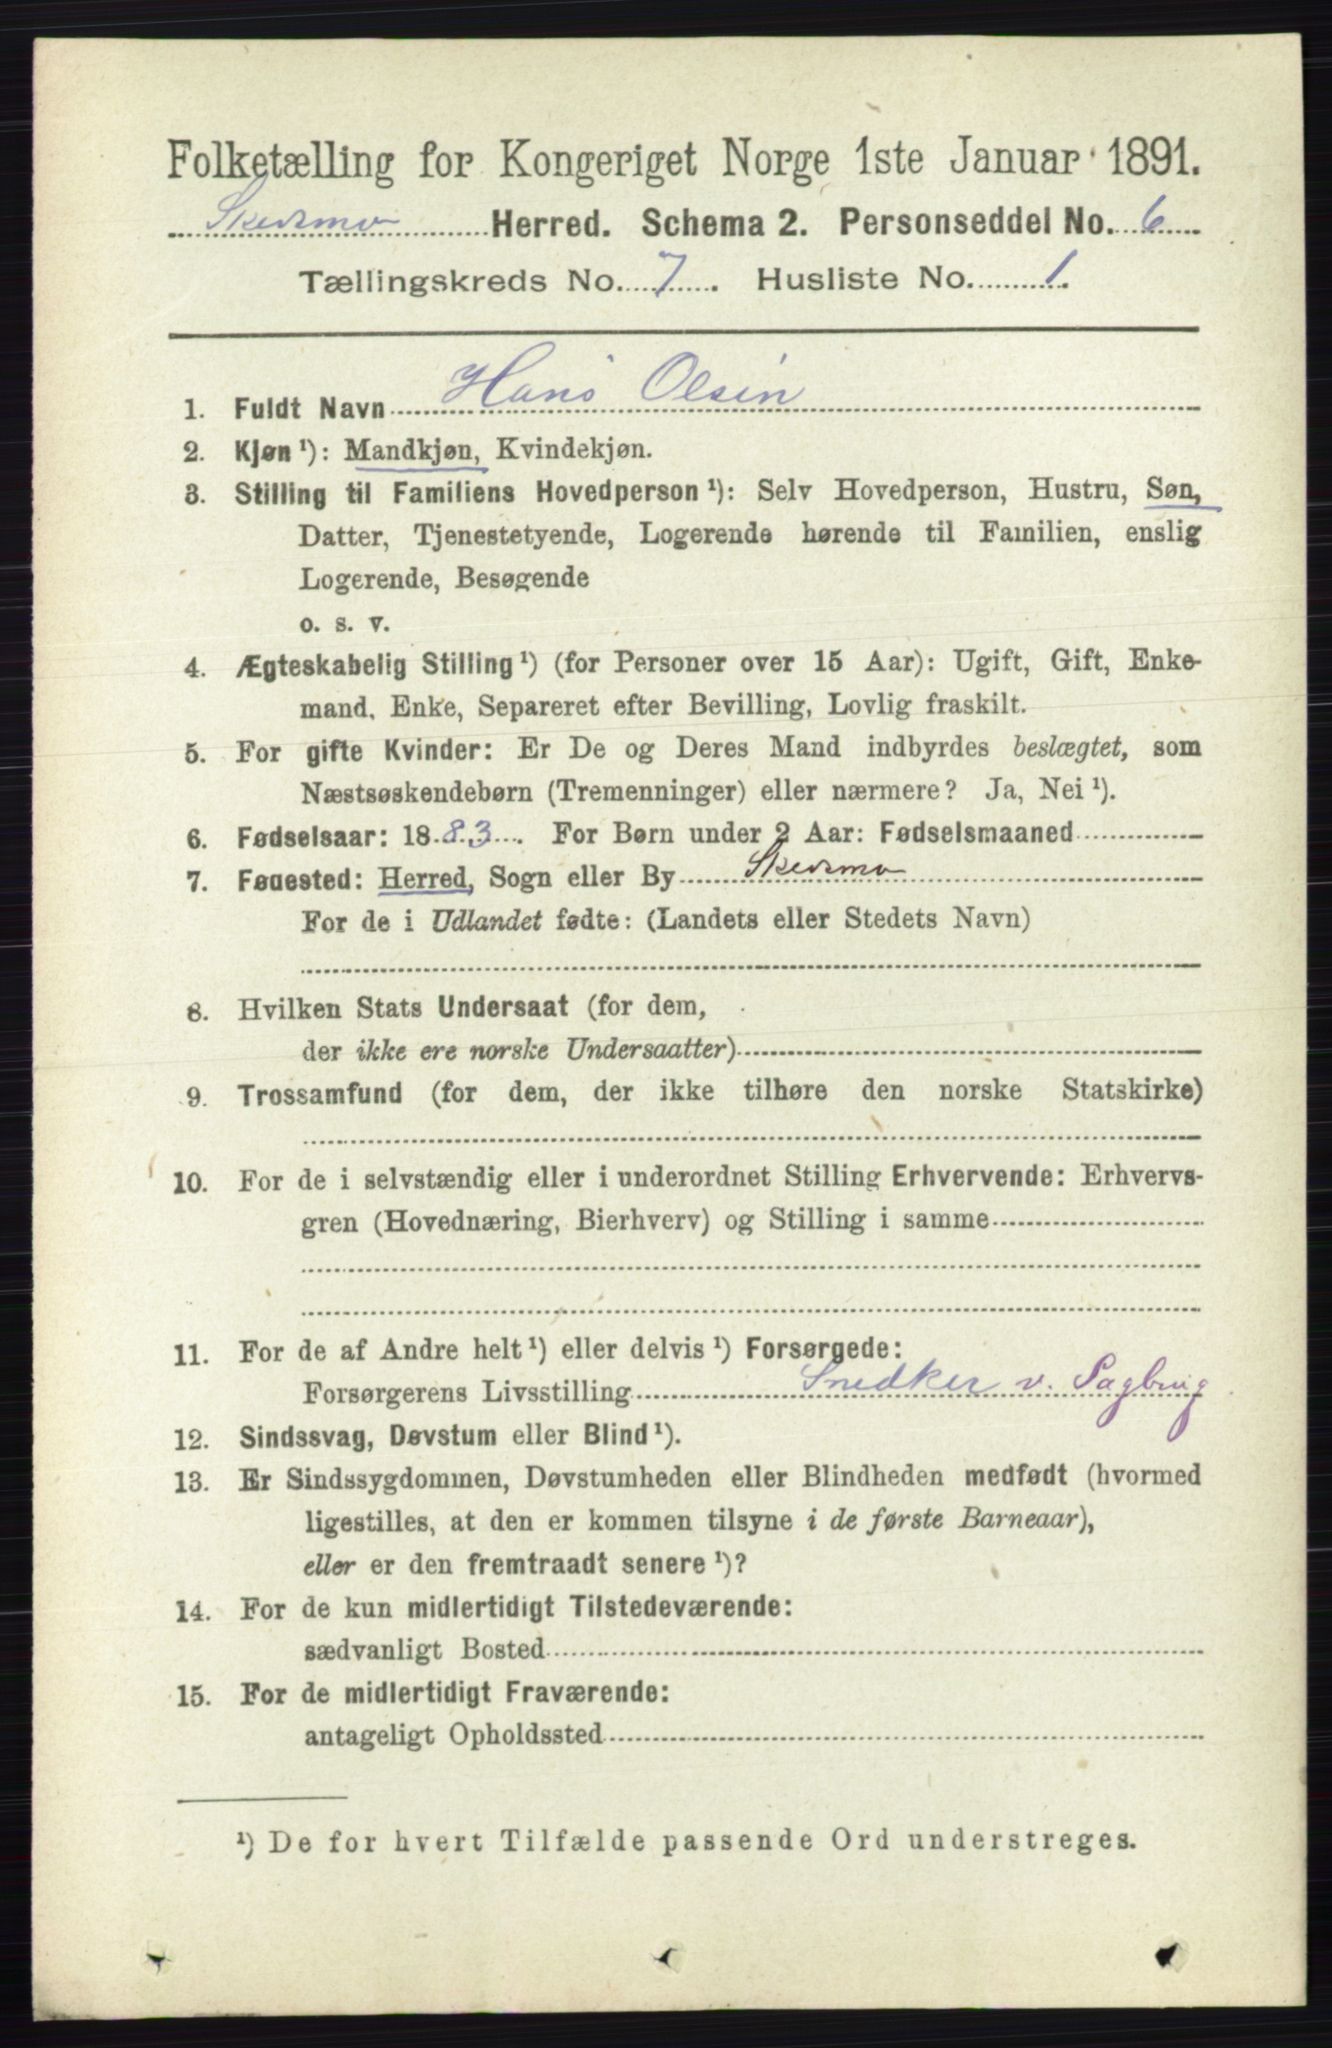 Folketælling for Kongeriget Norge 1ste Januar 1891.
Skedsmo Herred. Schema 2. Personseddel No. 6
Tællingskreds No. 7. Husliste No. 1.
1. Fuldt Navn Hans Olsen
2. Kjøn ¹): Mandkjøn, Kvindekjøn.
3. Stilling til Familiens Hovedperson ¹): Selv Hovedperson, Hustru, Søn,
Datter, Tjenestetyende, Logerende hørende til Familien, enslig
Logerende, Besøgende
o. s. v.
4. Ægteskabelig Stilling ¹) (for Personer over 15 Aar): Ugift, Gift, Enke-
mand, Enke, Separeret efter Bevilling, Lovlig fraskilt.
5. For gifte Kvinder: Er De og Deres Mand indbyrdes beslægtet, som
Næstsøskendebørn (Tremenninger) eller nærmere? Ja, Nei ¹).
6. Fødselsaar: 1883. For Børn under 2 Aar: Fødselsmaaned
7. Fødested: Herred, Sogn eller By Skedsmo
For de i Udlandet fødte: (Landets eller Stedets Navn)
8. Hvilken Stats Undersaat (for dem,
der ikke ere norske Undersaatter)
9. Trossamfund (for dem, der ikke tilhøre den norske Statskirke)
10. For de i selvstændig eller i underordnet Stilling Erhvervende: Erhvervs-
gren (Hovednæring, Bierhverv) og Stilling i samme
11. For de af Andre helt ¹) eller delvis ¹) Forsørgede:
Forsørgerens Livsstilling Snedker v. Sagbrug
12. Sindssvag, Døvstum eller Blind ¹).
13. Er Sindssygdommen, Døvstumheden eller Blindheden medfødt (hvormed
ligestilles, at den er kommen tilsyne i de første Barneaar),
eller er den fremtraadt senere ¹)?
14. For de kun midlertidigt Tilstedeværende:
sædvanligt Bosted
15. For de midlertidigt Fraværende:
antageligt Opholdssted
¹) De for hvert Tilfælde passende Ord understreges.